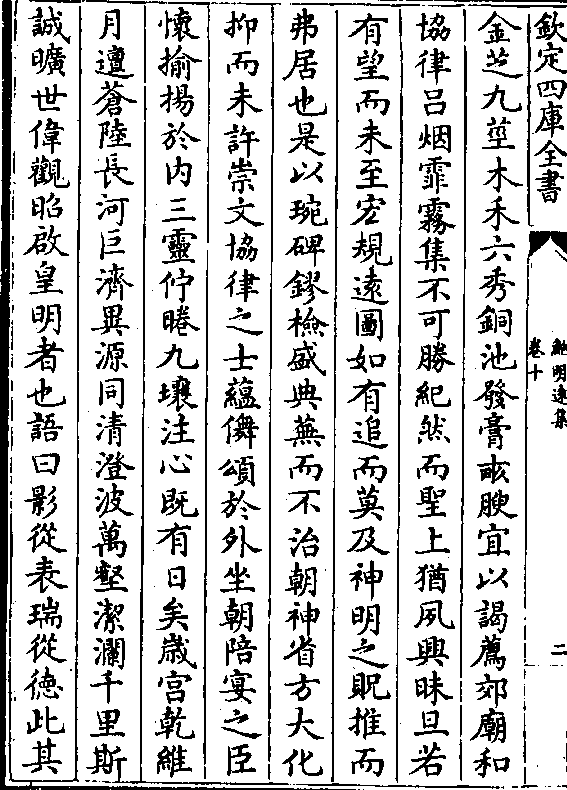 欽定四庫全書
鮑明遠集
卷十
二
金芝九莖木禾六秀銅池發膏畝腴宜以謁薦郊廟和
協律呂烟霏霧集不可勝紀然而聖上猶夙興昧旦若
有望而未至宏規遠圖如有追而莫及神明之貺推而
弗居也是以琬碑鏐檢盛典蕪而不治朝神省方大化
抑而未許崇文協律之士蘊儛頌於外坐朝陪宴之臣
懷揄揚於内三靈佇睠九壤注心既有日矣歲宫乾維
月邅蒼陸長河巨濟異源同清澄波萬壑潔瀾千里斯
誠曠世偉觀昭啟皇明者也語曰影從表瑞從德此其